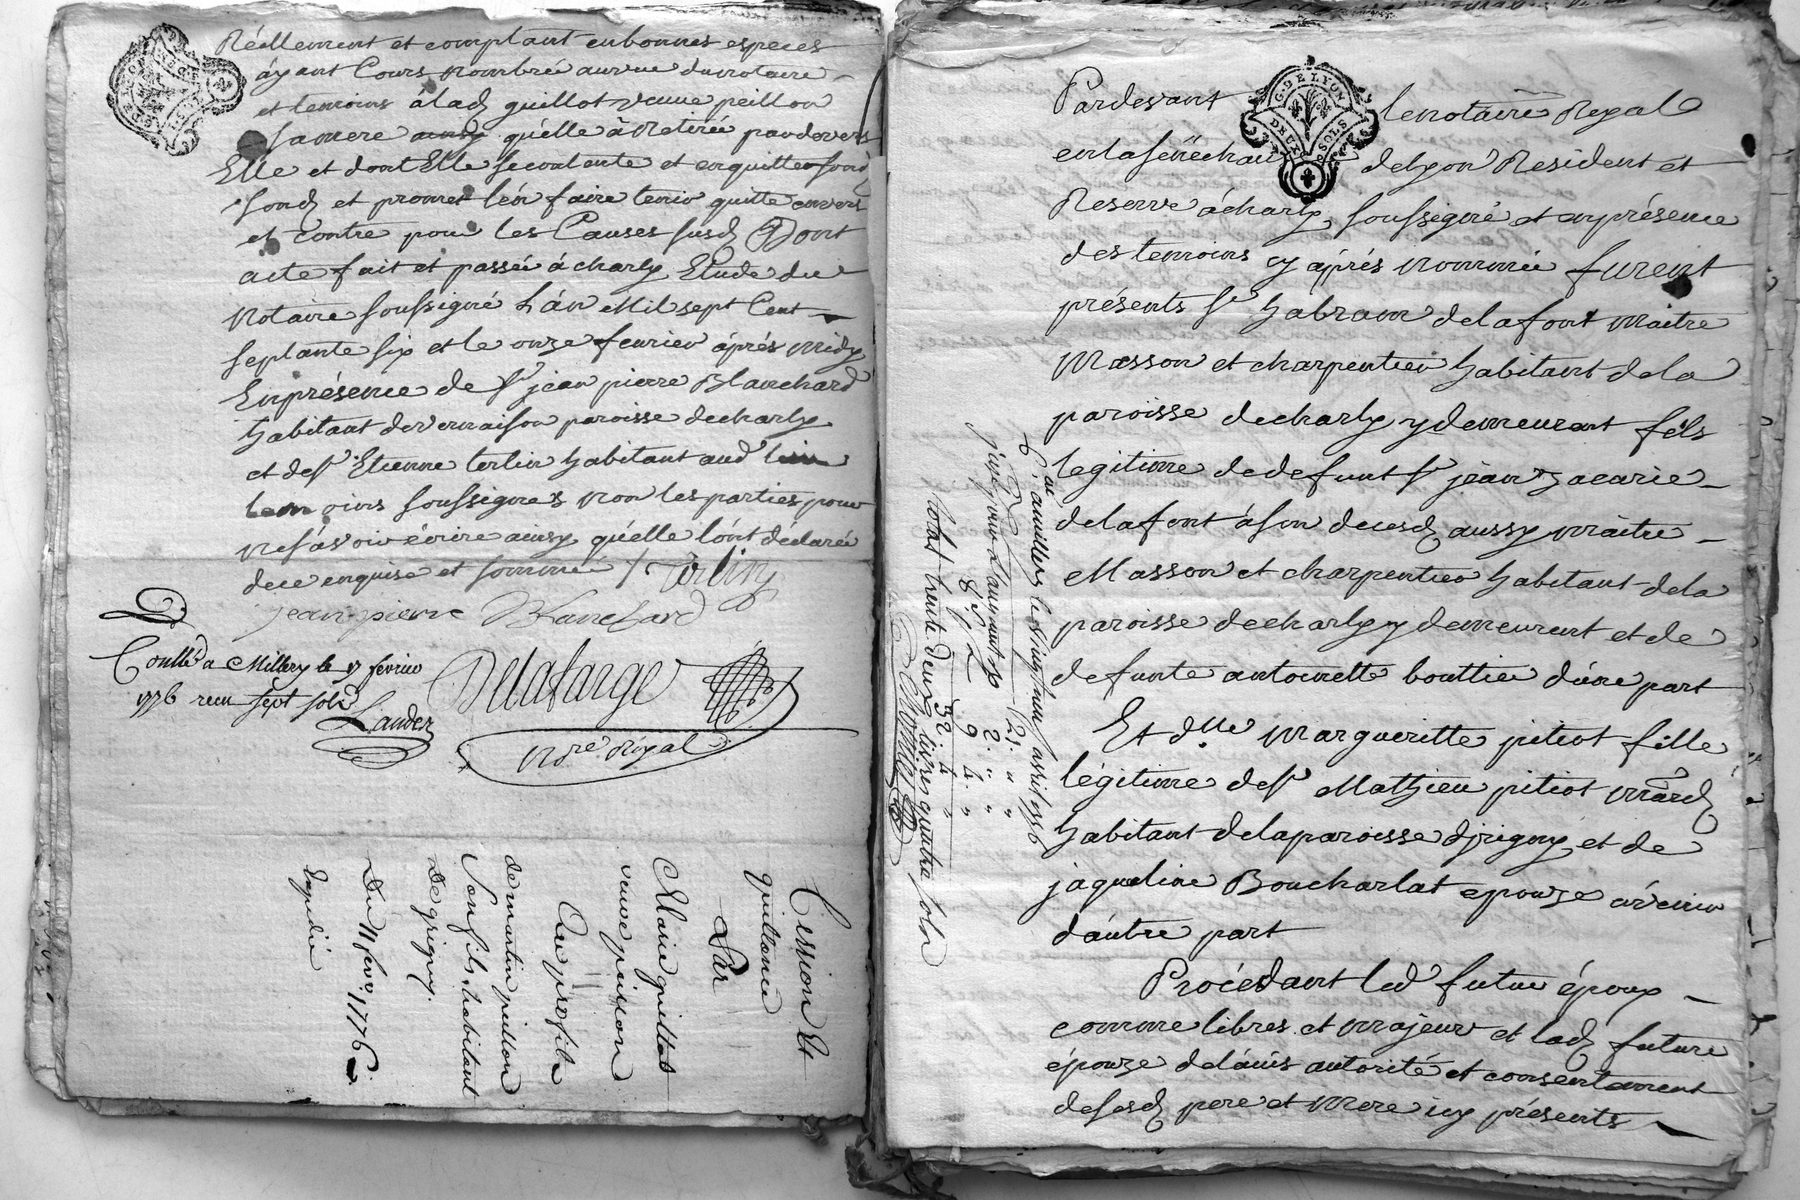 Réellement et comptant en bonnes especes
áyant Cours nombrée au vue du notaire
et temoins á lad guillot veuve peillon
sa mere ainsy qu'elle à Retirée pardevers
Elle et dont Elle se contante et en quitte sond
sond et promet l'én faire tenir quitte envers
et Contre pour les Causes susd Dont
acte fait et passée á charly Etude du
Notaire soussigné L'án Mil sept Cent
septante six et le onze feuvrier áprés midy
En présence de Sr jean pierre Blanchard
habitant de vernaison paroisse de charly
et de Sr Etienne terlin habitant aud lieu
temoins soussignes non les parties pour
ne sávoir écrire ainsy qu'elle l'ónt déclarée
de ce enquise et sommée / terlin
jean pierre Blanchard
Conllé a Millery le 17 fevrier
1776 recu sept sols
Lander
Delafarge
Nore Royal
Cession Et
quittance
Par
Marie guillot
veuve peillon
Au profit
de martin peillon
Son fils, habitant
de grigny.
Du 11 fevr 1776
Expedié
G. DE LYON
DEUX SOLS
Pardevant le notaire Royal
en la sénéchau de lyon Resident et
Reservé á charly soussigné et en présence
des temoins cy áprés nommée furent
présents Sr habram delafont maitre
Masson et charpentier habitant de la
paroisse de charly y demeurant fils
legitime de defunt Sr jean Zacarie
delafont á son decesd aussy màitre
Masson et charpentier habitant de la
paroisse de charly y demeurent et de
defunte antoinette bouttier d'úne part
Et dlle Margueritte pitiot fille
légitime de Sr Mathieu pitiot march
habitant de la paroisse d'jrigny et de
jaqueline Boucharlat epouze ávenir
d'áutre part
Procédant led futur époux
comme libres et majeur et lad future
épouze de l'ávis autorité et consentement
de sesd pere et mere icy présents
a millery le vingt un avril 1776
total trente deux livres quatre sols